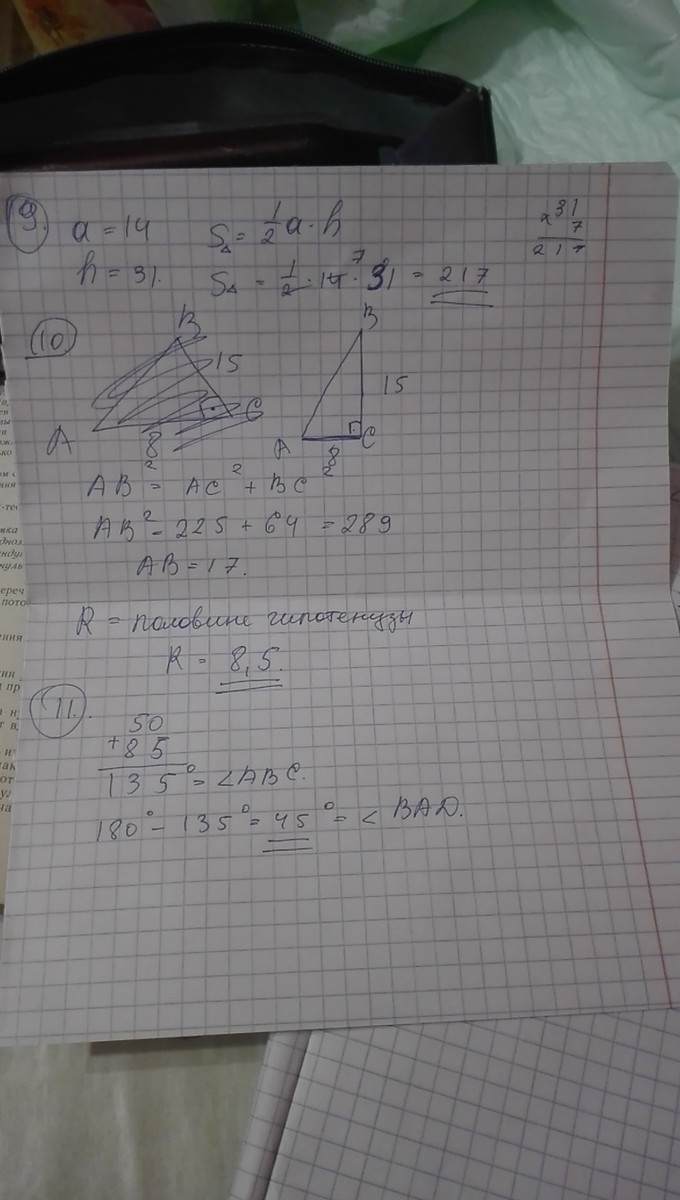 9.
a = 14 S△ = 1/2 a · h
h = 31. S△ = 1/2 · 14 · 31 = 217
7
x 31
7
217
10
B
15
A
8
C
B
15
A
8
C
AB² = AC² + BC²
AB² = 225 + 64 = 289
AB = 17.
R = половине гипотенузы
R = 8,5.
11.
50
+ 85
135° = ∠ABC.
180° - 135° = 45° = ∠ BAD.